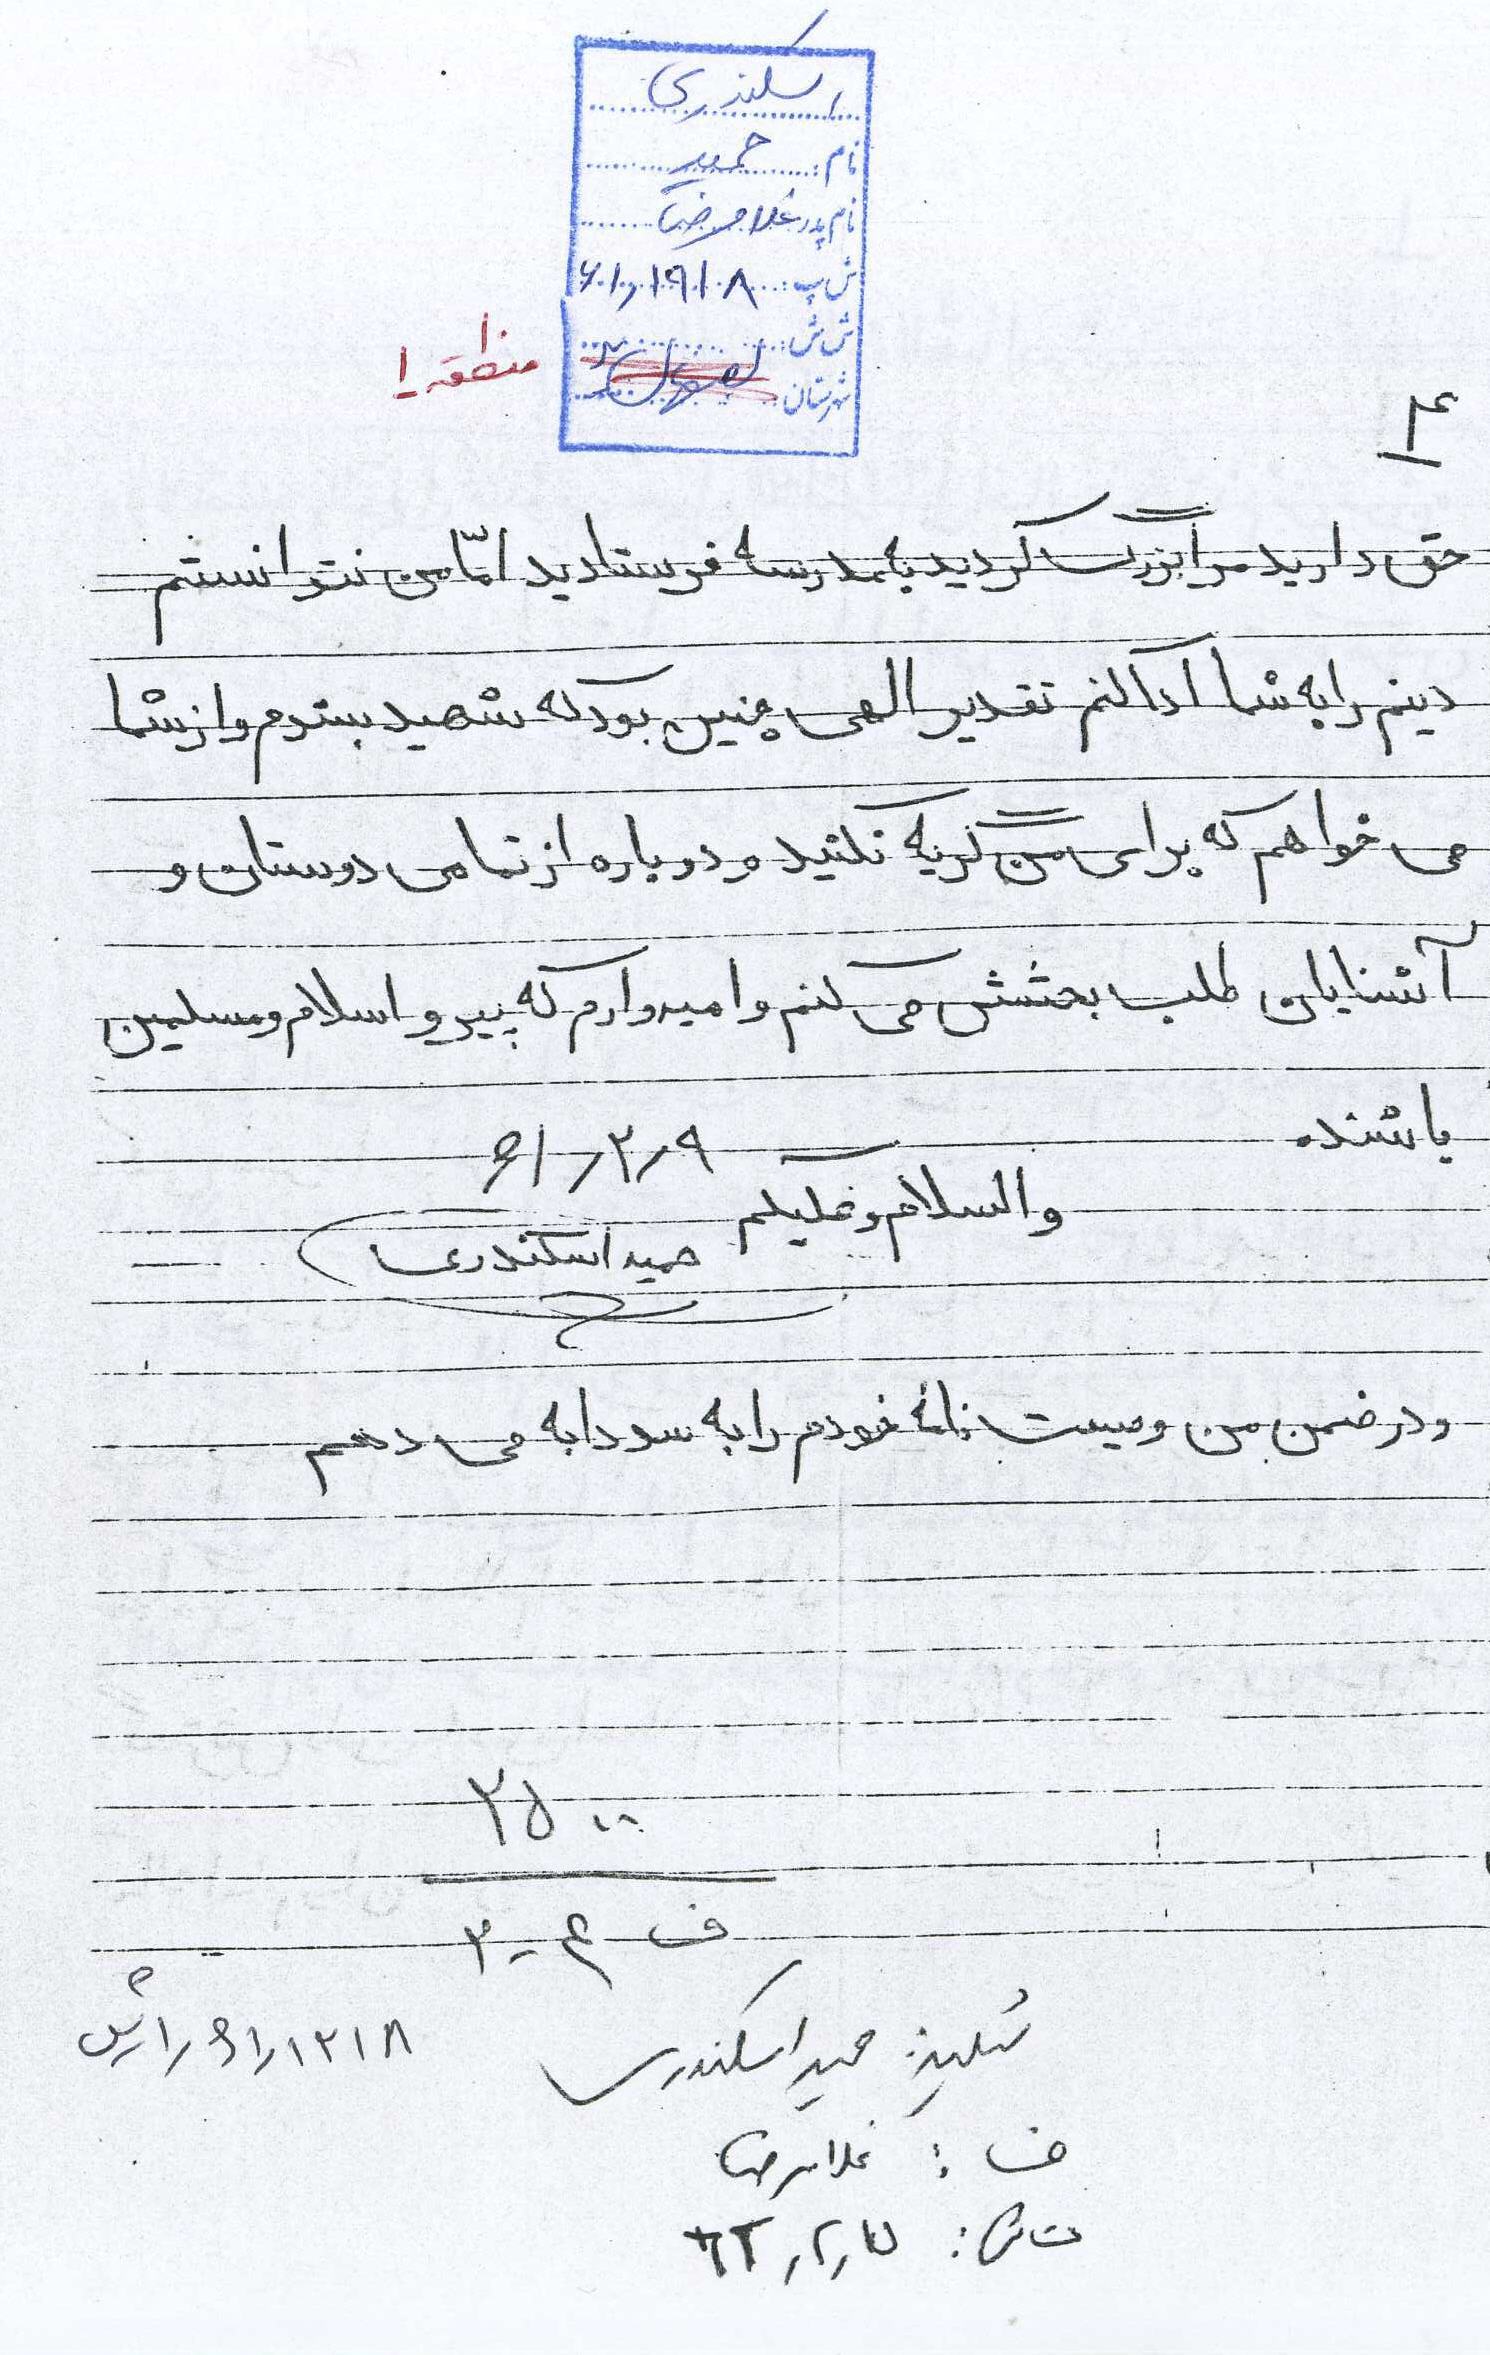 اسکندری
نام: حمید
نام پدر: غلامرضا
ش پ: ۶۱,۱۹۱۸
ش ش:
شهرستان:
منطقه ۱
۴
حق دارید مرا بزرگ کردید به مدرسه فرستادید امّا من نتوانستم
دینم را به شما ادا کنم تقدیر الهی چنین بود که شهید بشوم و از شما
می خواهم که برای من گریه نکنید و دوباره از تمامی دوستان و
آشنایان طلب بخشش می کنم و امیدوارم که پیرو اسلام و مسلمین
باشند.
۶۱,۲,۹
والسلام و علیکم
حمید اسکندری
و در ضمن من وصیت نامهٔ خودم را به سودابه می دهم
۲۵۰۰
ف ع - ۲
شهید: حمید اسکندری
ف: غلامرضا
ت ش: